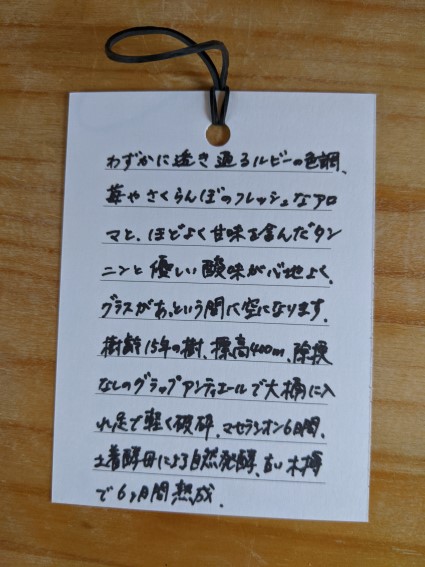 わずかに透き通るルビーの色調、
苺やさくらんぼのフレッシュなアロ
マと、ほどよく甘味を含んだタン
ニンと優しい酸味が心地よく、
グラスがあっという間に空になります。
樹齢15年の樹、標高400m、除梗
なしのグラップアンティエールで大桶に入
れ足で軽く破砕。マセラシオン6日間、
土着酵母による自然発酵、古い木樽
で6ヶ月間熟成。